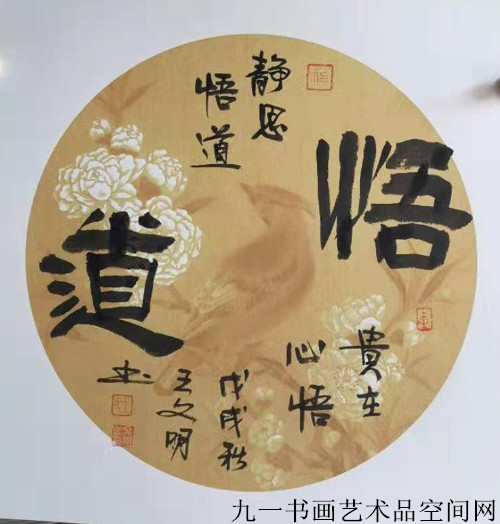 悟道
静思
悟道
贵在
心悟
戊戌秋
王文明
书
九一书画艺术品空间网